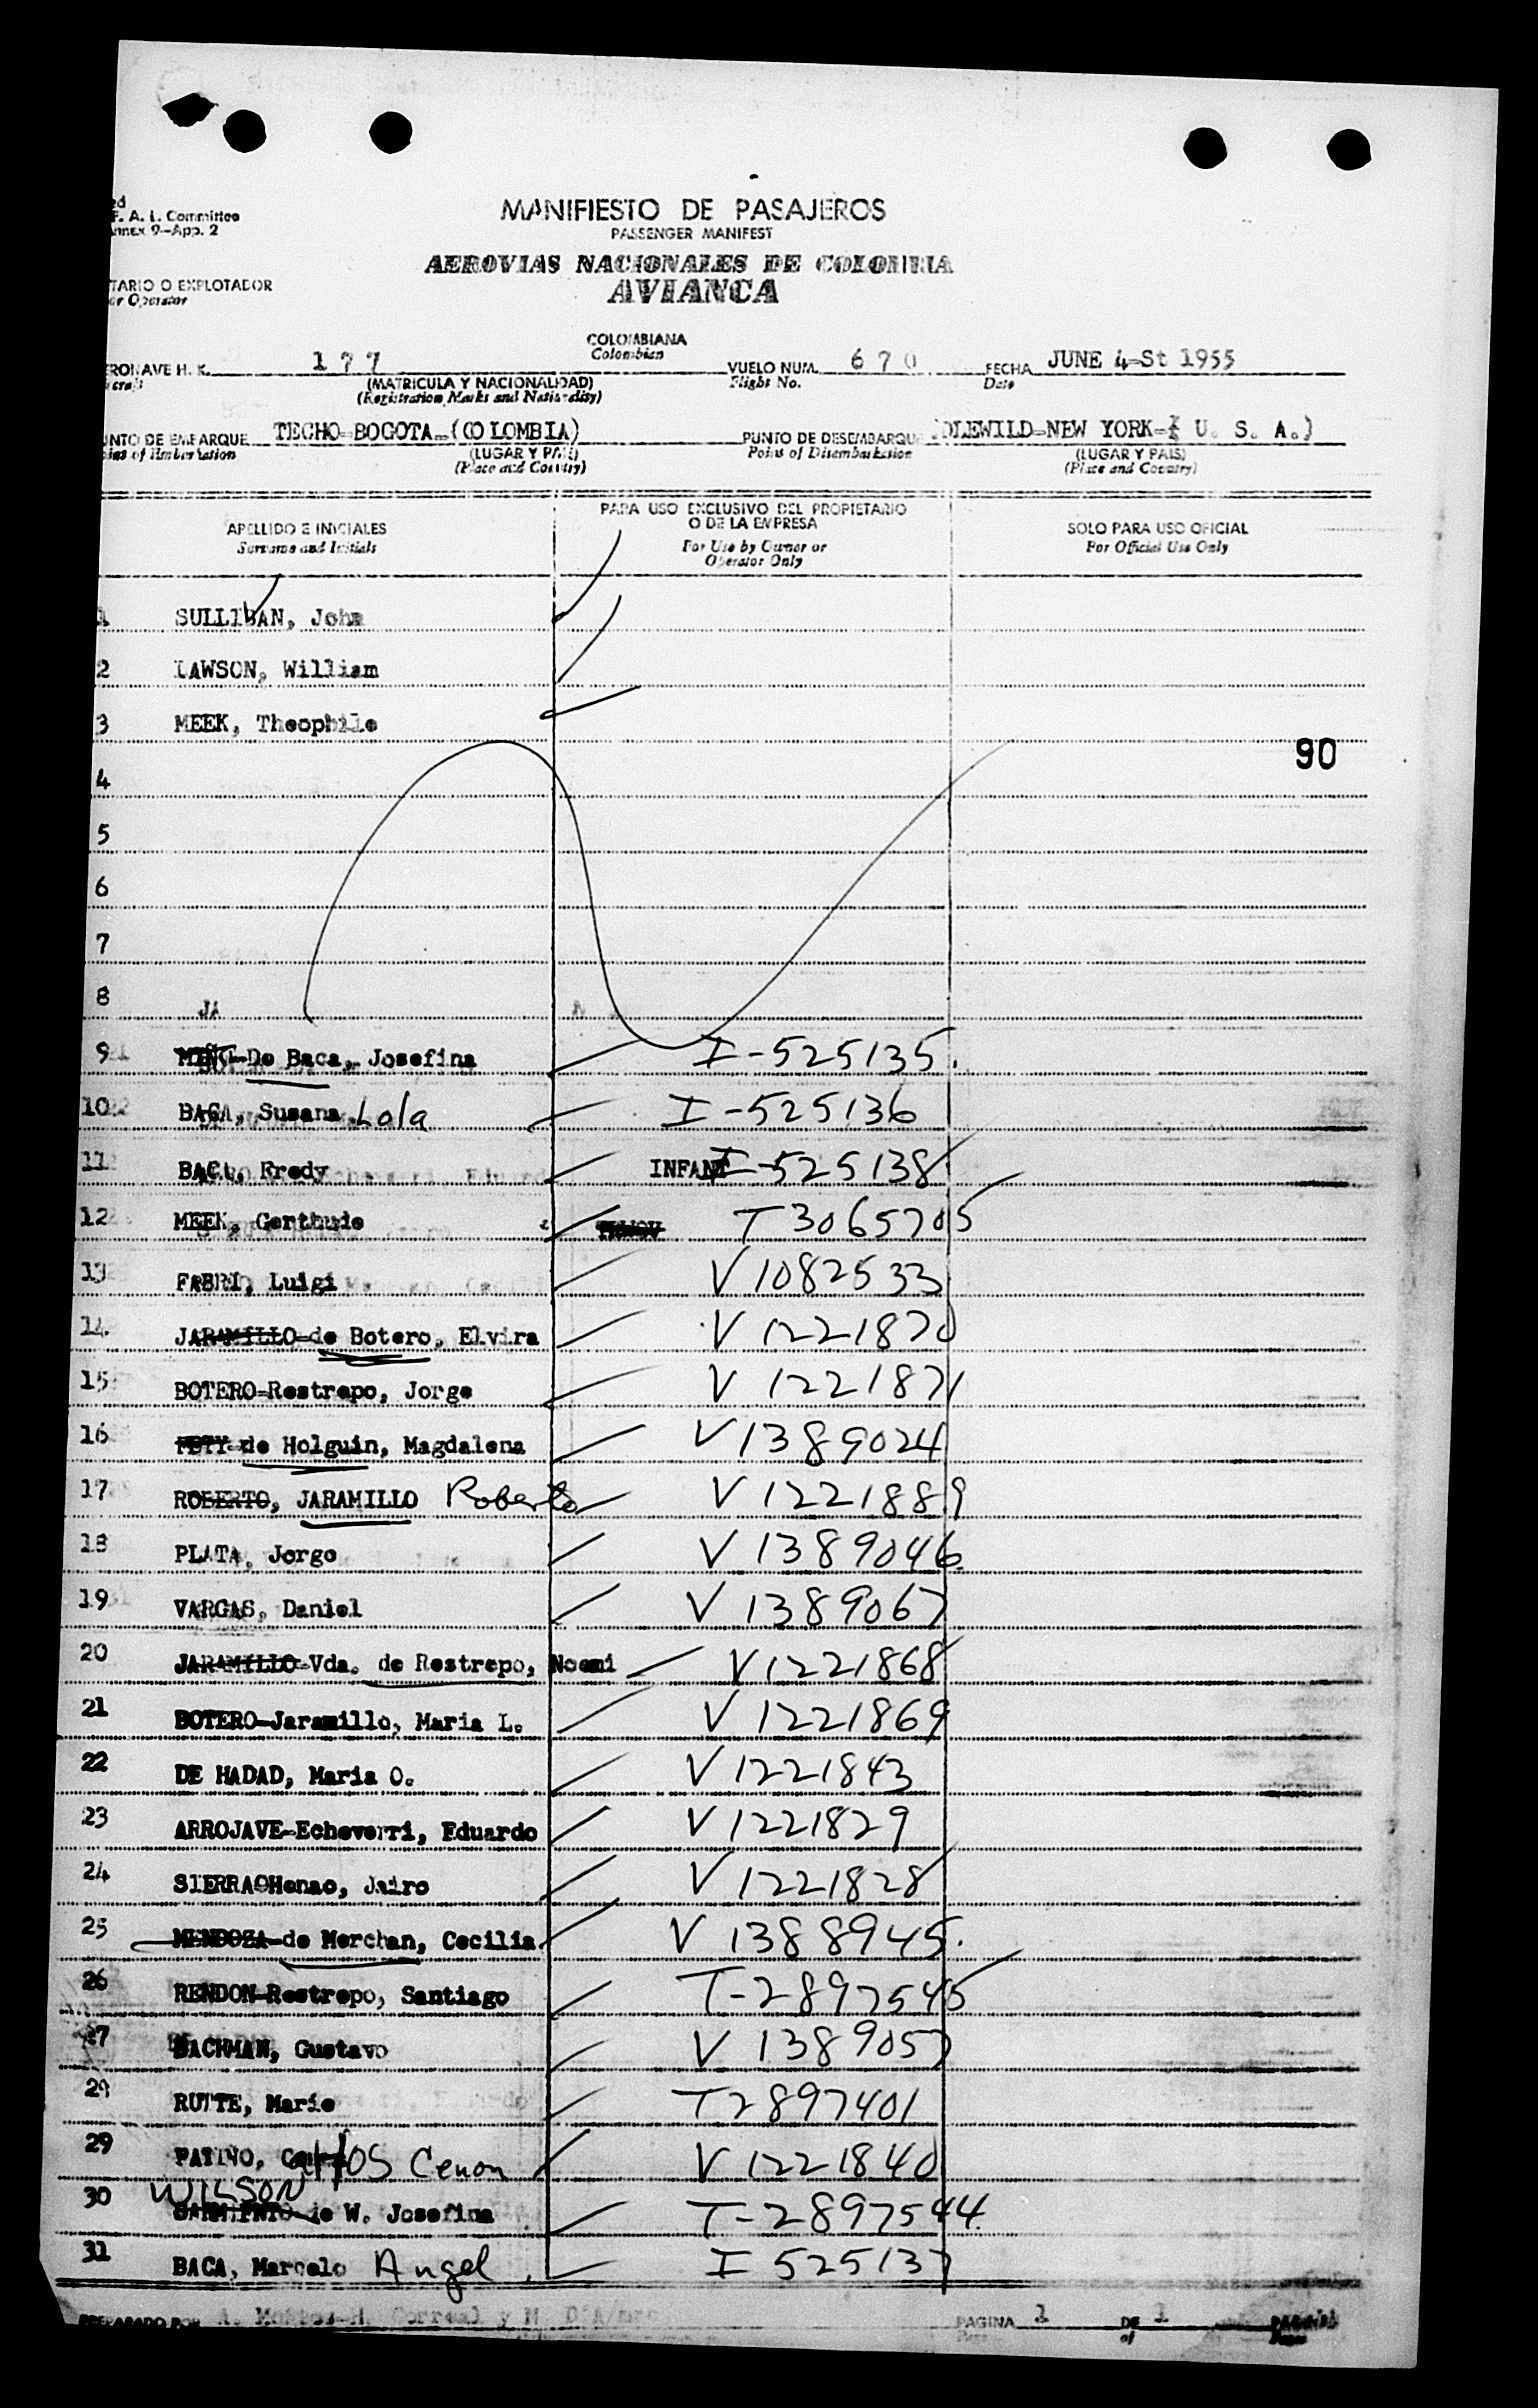 ed
F. A. L. Committee
Annex 9-App. 2
MANIFIESTO DE PASAJEROS
PASSENGER MANIFEST
AEROVIAS NACIONALES DE COLOMBIA
AVIANCA
TARIO O EXPLOTADOR
or Operator
COLOMBIANA
Colombian
RONAVE H. K. 177 VUELO NUM. 670 FECHA JUNE 4-St 1955
craft (MATRICULA Y NACIONALIDAD) Flight No. Date
(Registration Marks and Nationality)
UNTO DE EMBARQUE TECHO-BOGOTA-(COLOMBIA) PUNTO DE DESEMBARQUE IDLEWILD-NEW YORK-( U. S. A.)
Point of Embarkation (LUGAR Y PAIS) Point of Disembarkation (LUGAR Y PAIS)
(Place and Country) (Place and Country)
APELLIDO E INICIALES PARA USO EXCLUSIVO DEL PROPIETARIO O DE LA EMPRESA SOLO PARA USO OFICIAL
Surname and Initials For Use by Owner or Operator Only For Official Use Only
1 SULLIVAN, John
2 LAWSON, William
3 MEEK, Theophile
90
4
5
6
7
8
9 De Baca, Josefina I-525135.
10 BACA, Susana Lola I-525136
11 BACA, Fredy INFANT I-525138
12 MEEK, Gerthude T3065705
13 FABRI, Luigi V1082533
14 JARAMILLO-de Botero, Elvira V1221870
15 BOTERO-Restrepo, Jorge V 1221871
16 de Holguin, Magdalena V1389024
17 ROBERTO, JARAMILLO Roberto V1221889
18 PLATA, Jorge V1389046
19 VARGAS, Daniel V1389067
20 JARAMILLO-Vda. de Restrepo, Noemi V1221868
21 BOTERO-Jaramillo, Maria L. V1221869
22 DE HADAD, Maria O. V1221843
23 ARROJAVE-Echeverri, Eduardo V1221829
24 SIERRAOHenao, Jairo V1221828
25 MENDOZA-de Merchan, Cecilia V1388945.
26 RENDON-Restrepo, Santiago T-2897545
27 BACHMAN, Gustavo V1389057
28 RUTTE, Marie T2897401
29 PATINO, Cenon V1221840
WILSON
30 SARMIENTO-de W. Josefina T-2897544
31 BACA, Marcelo Angel I 525137
PREPARADO POR PAGINA 1 DE 1 PAGINAS
of